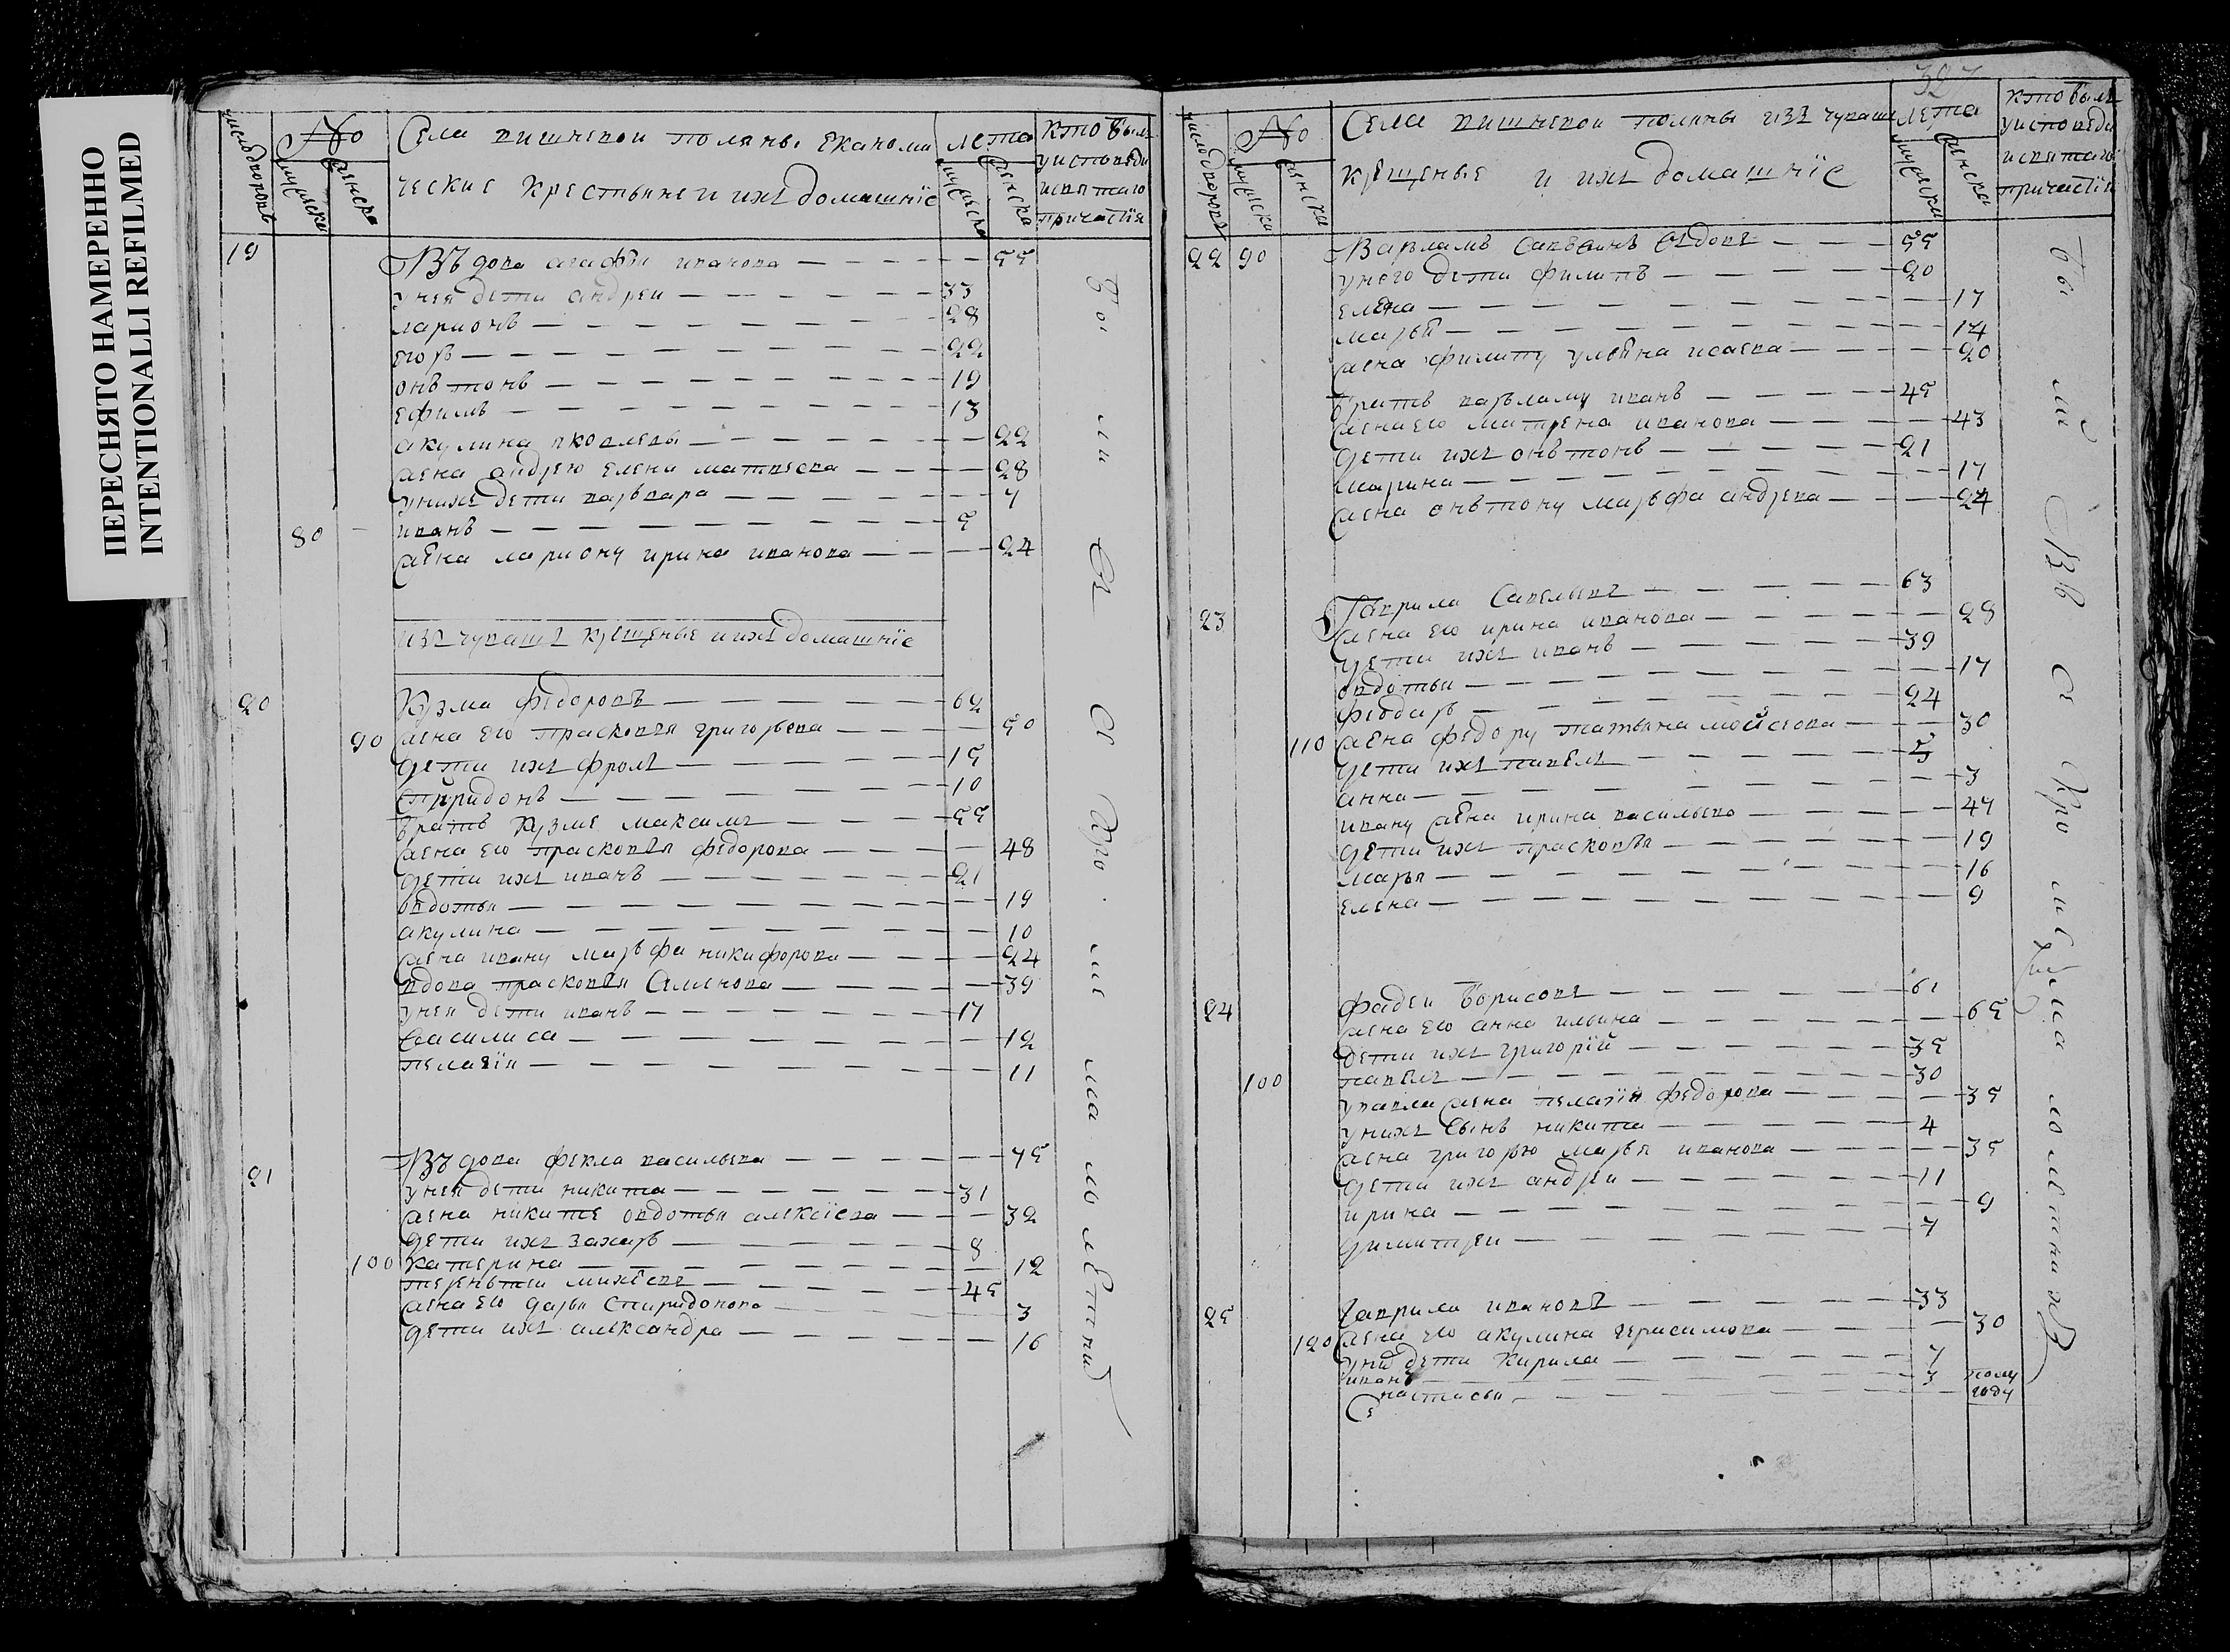 ПЕРЕСНЯТО НАМЕРЕННО
INTENTIONALLI REFILMED
число дворовъ
No
мужеска
женска
Села вишневой поляны економи
ческие крестьяне и ихъ домашнїе
лета
мужеска
женска
кто былъ
уисповеди
исвятаго
причастїя
19 Въдова агафья иванова — 55
унея дети андреи — 33
ларионъ — 28
егоръ — 22
онътонъ — 19
ефимъ — 13
акулина яковлева — 22
жена андрею елена матвеева — 28
унихъ дети варвара — 7
80 иванъ — 5
жена лариону ирина иванова — 24
изъ чувашъ крещеные и ихъ домашнїе
20 Кузма федоровъ — 62
90 жена ево прасковя григорьева — 50
дети ихъ фролъ — 15
спиридонъ — 10
братъ кузме максимъ — 55
жена ево прасковя федорова — 48
дети ихъ иванъ — 21
овдотья — 19
акулина — 10
жена ивану марьфа никифорова — 24
вдова прасковя Семенова — 39
унея дети иванъ — 17
василиса — 12
пелагїя — 11
21 Въдова фекла васильева — 75
унея дети никита — 31
жена никите овдотья алексїева — 32
дети ихъ захаръ — 8
100 катерина — 12
терентеи михеевъ — 45
жена ево дарья спиридонова — 3
дети ихъ александра — 16
Бы ли А А кро ме ма ло летнихъ
327
число дворовъ
No
мужеска
женска
Села вишневой поляны изъ чуваш
крещеные и ихъ домашнїе
лета
мужеска
женска
кто былъ
уисповеди
исвятаго
причастїя
22 90 Варламъ — 55
унего дети филипъ — 20
елена — 17
марья — 14
жена филипу ульяна исаева — 20
братъ варламу иванъ — 45
жена ево матрена иванова — 43
дети ихъ онътонъ — 21
марина — 17
жена онътону марьфа андрева — 24
23 Гаврила Савельевъ — 63
жена ево ирина иванова — 28
дети ихъ иванъ — 39
овдотья — 17
феодаръ — 24
110 жена федору татьяна мойсеова — 30
дети ихъ павелъ — 5
анна — 3
ивану жена ирина васильева — 47
дети ихъ прасковья — 19
марья — 16
елена — 9
24 фадеи борисовъ — 61
жена ево анна ильина — 65
дети ихъ григорїй — 35
100 павелъ — 30
упавла жена пелагїя федорова — 35
унихъ сынъ никита — 4
жена григорью марья иванова — 35
дети ихъ андреи — 11
ирина — 9
димитреи — 7
25 Гаврила ивановъ — 33
120 жена ево акулина герасимова — 30
унихъ дети кирила — 7
иванъ — 3
настасья — полу
году
Бы ли Въ А Кро ме ма ло летнихъ